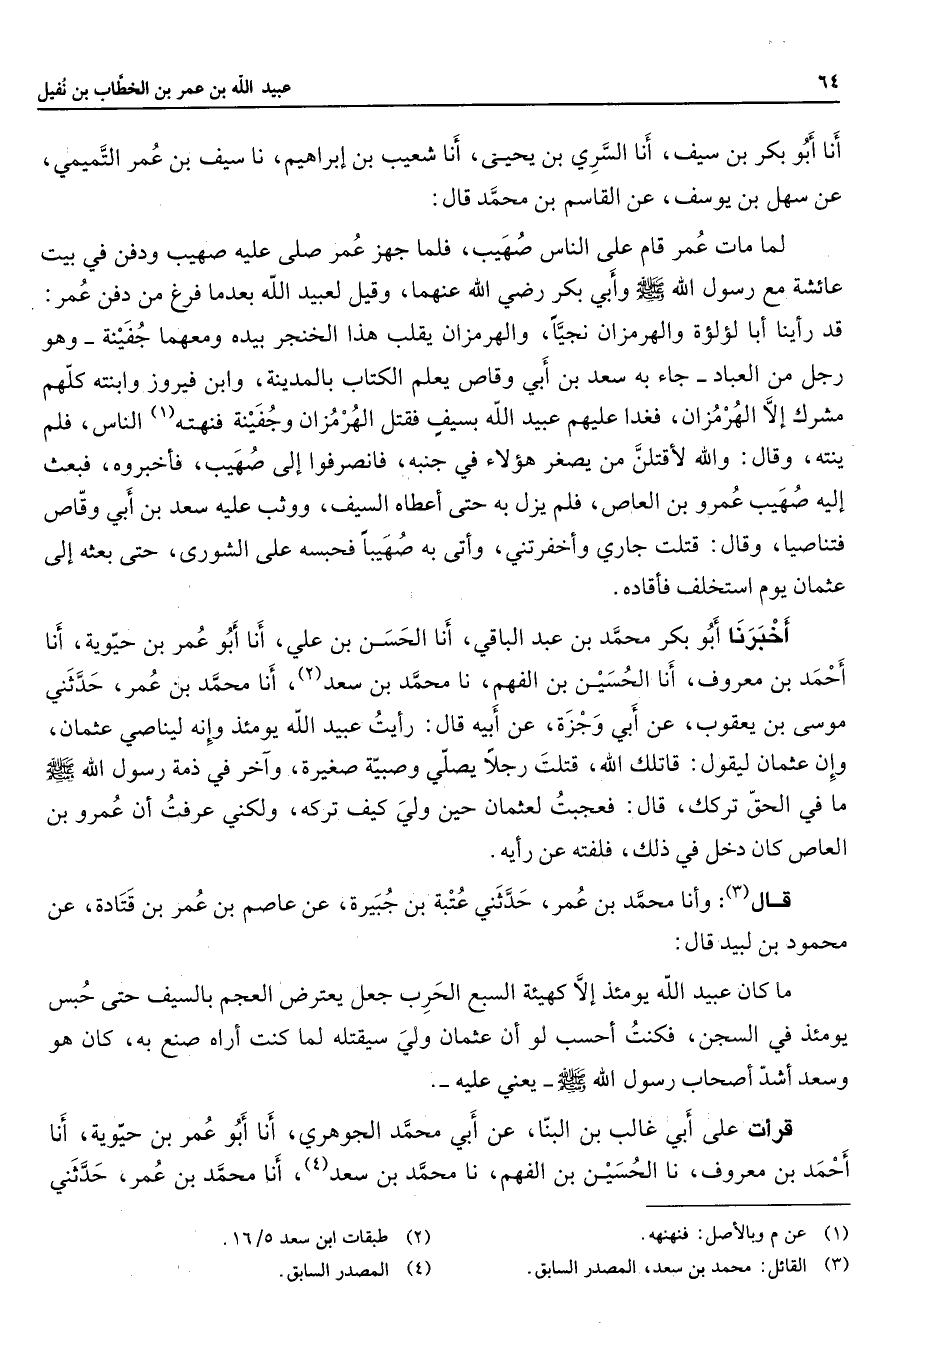 ٦٤
عبيد الله بن عمر بن الخطَّاب بن نُفيل
أَنا أَبُو بكر بن سيف، أَنا السَّرِي بن يحيى، أَنا شعيب بن إبراهيم، نا سيف بن عُمر التَّميمي،
عن سهل بن يوسف، عن القاسم بن محمَّد قال:
لما مات عُمر قام على الناس صُهَيب، فلما جهز عُمر صلى عليه صهيب ودفن في بيت
عائشة مع رسول الله ﷺ وأَبي بكر رضي الله عنهما، وقيل لعبيد الله بعدما فرغ من دفن عُمر:
قد رأينا أبا لؤلؤة والهرمزان نجيَّاً، والهرمزان يقلب هذا الخنجر بيده ومعهما جُفَيْنة ـ وهو
رجل من العباد ـ جاء به سعد بن أَبي وقاص يعلم الكتاب بالمدينة، وابن فيروز وابنته كلّهم
مشرك إلَّا الهُرْمُزان، فغدا عليهم عبيد الله بسيفٍ فقتل الهُرْمُزان وجُفَيْنة فنهته(١) الناس، فلم
ينته، وقال: والله لأقتلنَّ من يصغر هؤلاء في جنبه، فانصرفوا إلى صُهَيب، فأخبروه، فبعث
إليه صُهَيب عُمرو بن العاص، فلم يزل به حتى أعطاه السيف، ووثب عليه سعد بن أَبي وقّاص
فتناصيا، وقال: قتلت جاري وأخفرتني، وأتى به صُهَيباً فحبسه على الشورى، حتى بعثه إلى
عثمان يوم استخلف فأقاده.
أَخْبَرَنَا أَبُو بكر محمَّد بن عبد الباقي، أَنا الحَسَن بن علي، أَنا أَبُو عُمر بن حيّوية، أَنا
أَحْمَد بن معروف، أَنا الحُسَيْن بن الفهم، نا محمَّد بن سعد(٢)، أَنا محمَّد بن عُمر، حَدَّثَني
موسى بن يعقوب، عن أَبي وَجْزَة، عن أَبيه قال: رأيتُ عبيد الله يومئذ وإنه ليناصي عثمان،
وإن عثمان ليقول: قاتلك الله، قتلتَ رجلاً يصلّي وصبيّة صغيرة، وآخر في ذمة رسول الله ﷺ
ما في الحقّ تركك، قال: فعجبتُ لعثمان حين وليَ كيف تركه، ولكني عرفتُ أن عُمرو بن
العاص كان دخل في ذلك، فلفته عن رأيه.
قال(٣): وأنا محمَّد بن عُمر، حَدَّثَني عُتْبة بن جُبَيرة، عن عاصم بن عُمر بن قَتَادة، عن
محمود بن لبيد قال:
ما كان عبيد الله يومئذ إلَّا كهيئة السبع الحَرِب جعل يعترض العجم بالسيف حتى حُبس
يومئذ في السجن، فكنتُ أحسب لو أن عثمان وليَ سيقتله لما كنت أراه صنع به، كان هو
وسعد أشدّ أصحاب رسول الله ﷺ ـ يعني عليه ـ.
قرأت على أَبي غالب بن البنّا، عن أَبي محمَّد الجوهري، أَنا أَبُو عُمر بن حيّوية، أَنا
أَحْمَد بن معروف، نا الحُسَيْن بن الفهم، نا محمَّد بن سعد(٤)، أَنا محمَّد بن عُمر، حَدَّثَني
(١) عن م وبالأصل: فنهنهه.
(٢) طبقات ابن سعد ١٦/٥.
(٣) القائل: محمد بن سعد، المصدر السابق.
(٤) المصدر السابق.